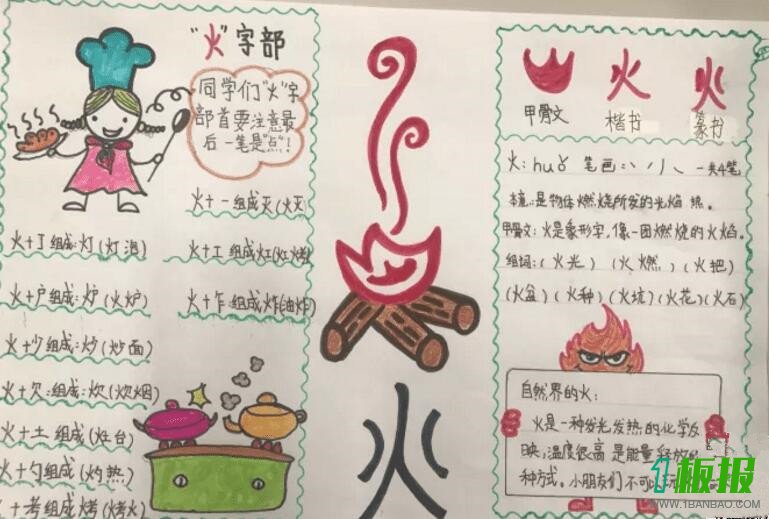 "火"字部
同学们"火"字
部首要注意最
后一笔是"点"!
火+一组成灭(火灭)
火+丁组成:灯(灯泡)
火+工组成
火+户组成:炉(火炉)
火+乍组成炸(油炸)
火+少组成:炒(炒面)
火+欠:组成:炊(炊烟)
火+土组成(灶台)
火+勺组成(灼热)
火+考组成烤(烤火)
火
火 火
甲骨文 楷书 篆书
火:huǒ 笔画:丶丿丿丶一共4笔
本意:是物体燃烧所发的光焰 热。
甲骨文:火是象形字,像一团燃烧的火焰。
组词:(火光) (火燃) (火把)
(火盆)(火种)(火坑)(火花)(火石)
自然界的火:
火是一种发光发热的化学反
映,温度很高 是能量释放的
种方式。小朋友们不可以玩
1板报
WWW.1BANBAO.COM